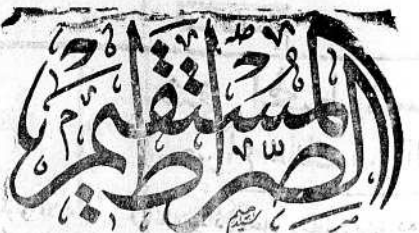 الصِّرٰط المستقيم